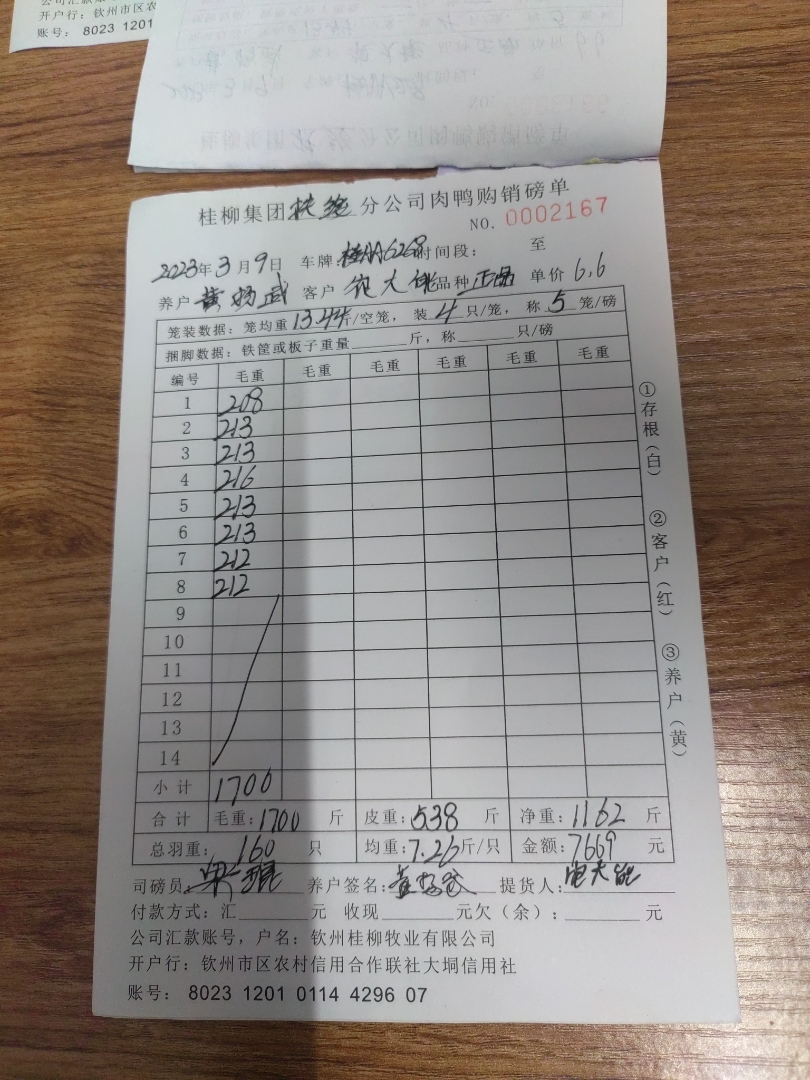 开户行：钦州市区农
账号： 8023 1201
桂柳集团 分公司肉鸭购销磅单
NO. 0002167
2023年3月9日 车牌 桂AA6268 时间段： 至
养户 黄 武 客户 大 品种 正品 单价 6.6
笼装数据：笼均重 13.44斤/空笼，装 4 只/笼，称 5 笼/磅
捆脚数据：铁筐或板子重量 斤，称 只/磅
编号 毛重 毛重 毛重 毛重 毛重 毛重
1 208
2 213
3 213
4 216
5 213
6 213
7 212
8 212
9
10
11
12
13
14
小计 1700
合计 毛重：1700 斤 皮重：538 斤 净重：1162 斤
总羽重：160 只 均重：7.26斤/只 金额：7669 元
司磅员 养户签名：黄 提货人：
付款方式：汇 元 收现 元欠（余）： 元
公司汇款账号，户名：钦州桂柳牧业有限公司
开户行：钦州市区农村信用合作联社大垌信用社
账号： 8023 1201 0114 4296 07
①存根（白）
②客户（红）
③养户（黄）